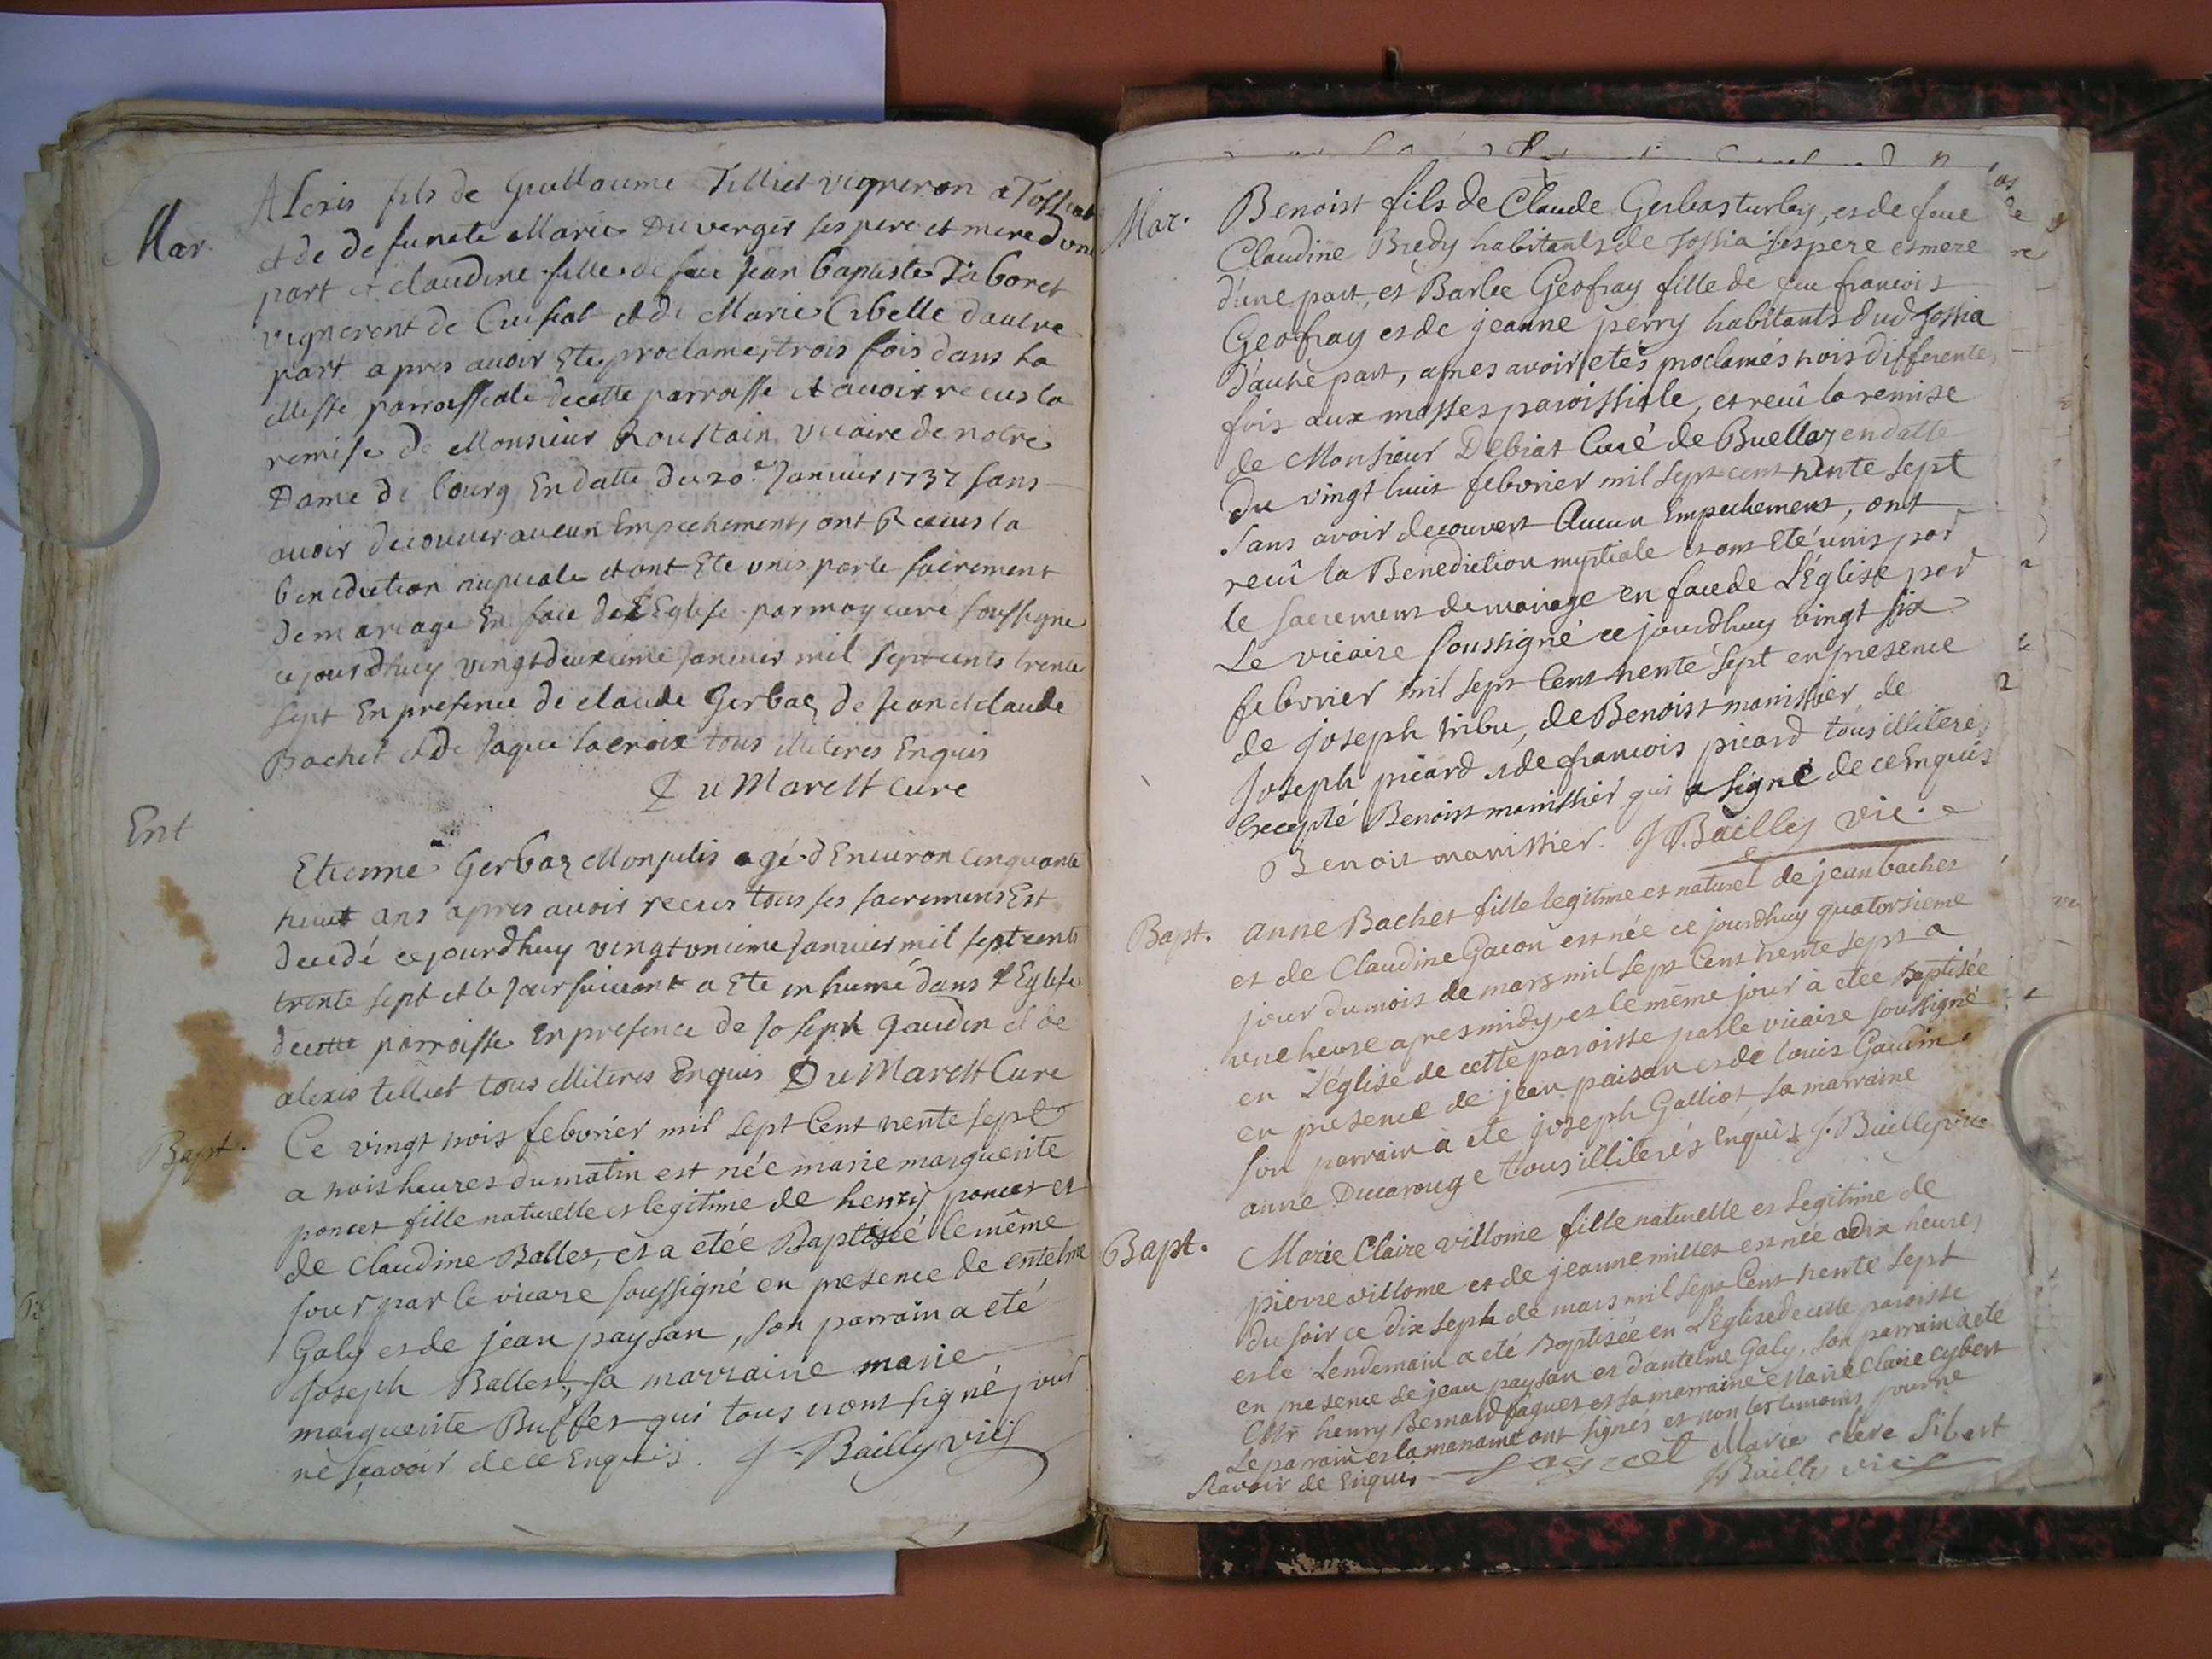 Mar
Alexis fils de Guillaume Tilliet vigneron a Tossiat
et de defuncte Marie Duverger ses pere et mere d'une
part et claudine fille de feu Jean baptiste Taboret
vigneront de Cuisiat et de Marie Cibelle dautre
part apres avoir Ete proclamez trois fois dans la
Messe parroissiale decette parroisse et avoir recus la
remise de Monsieur Roustain vicaire de notre
Dame de bourg En datte du 20e Januier 1737 sans
avoir decouver aucun Empechements ont Recus la
benediction nuptiale et ont Ete unis par le sacrement
de mariage En face de l'Eglise par moy curé soussigne
cejourdhuy vingtdeuxiéme januier mil septcents trente
sept En presence de claude Gerbaz de Jean et claude
Bachet et de Jaque lacroix tous illiteres Enquis
Du Marest Cure
Ent
Etienne Gerbaz Monjulis agé d'Enuiron cinquante
huit ans apres avoir recus tous ses sacremens Est
decedé cejourdhuy vingtunieme Januier mil septcents
trente sept et le jour suiuant a Ete inhumé dans l'Eglise
decette parroisse En presence de Joseph Gaudin et de
alexis tilliet tous illiteres Enquis Du Marest Cure
Bapt.
Ce vingt trois febvrier mil sept Cent trente sept
a trois heures du matin est née marie marguerite
poncet fille naturelle et legitime de henry poncet et
de Claudine Ballet, et a etée Baptisée le même
jour par le vicaire soussigné en presence de entelme
Galy et de jean paysan, son parrain a eté
Joseph Ballet, sa marraine marie
marguerite Buffet qui tous n'ont signé pour
ne sçavoir de ce Enquis. J. Bailly vic
Mar.
Benoist fils de Claude Gerbas turley, et de feue
Claudine Bredy habitants de Tossia ses pere et mere
d'une part, et Barbe Geofray fille de feu francois
Geofray et de jeanne perry habitants dud Tossia
d'autre part, apres avoir etés proclamés trois differentes
fois aux messes paroissiale, et recû la remise
de Monsieur Debiat Curé de Buellaz en datte
du vingt huit febvrier mil sept cent trente sept
Sans avoir decouvert Aucun Empechement, ont
recû la Benediction nuptiale et ont Eté unis par
le sacrement de mariage en face de L'Eglise par
Le vicaire soussigné ce jourdhuy vingt six
febvrier mil sept Cent trente sept en presence
de Joseph tribu, de Benoist manissier, de
Joseph picard et de francois picard tous illiterés
Excepté Benoist manissier qui a signé de ce Enquis
Benoit manissier. J. Bailly vic.
Bapt.
Anne Bachet fille legitime et naturel de jean bachet
et de Claudine Gacon est née ce jourdhuy quatorsieme
jour du mois de mars mil sept Cent trente sept a
une heure apres midy, et le même jour à etee Baptisée
en L'église de cette paroisse par le vicaire soussigné
en presence de jean paisan et de louis Gaudin
son parrain à eté joseph Galliot, sa marraine
anne Ducarouge tous illiterés Enquis J. Bailly vic
Bapt.
Marie Claire villome fille naturelle et Legitime de
pierre villome et de jeanne millet est née a dix heures
du soir ce dix sept de mars mil sept Cent trente sept
et le Lendemain a eté Baptisée en L'Eglise de cette paroisse
en presence de jean paysan et d'antelme Galy, son parrain à eté
Mr henry Bernard faguet et sa marraine Marie Claire Cybert
Le parrain et la marraine ont signés et non les temoins pour ne
scavoir de Enquis Marie clere Sibert
J. Bailly vic